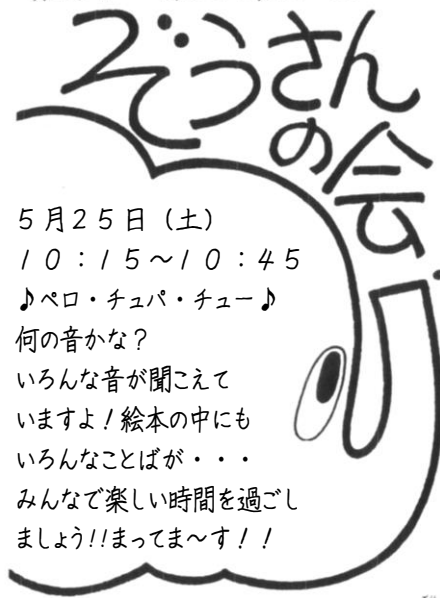 ぞうさん
の会
5月25日（土）
10：15～10：45
♪ペロ・チュパ・チュー♪
何の音かな？
いろんな音が聞こえて
いますよ！絵本の中にも
いろんなことばが・・・
みんなで楽しい時間を過ごし
ましょう！！まってま～す！！